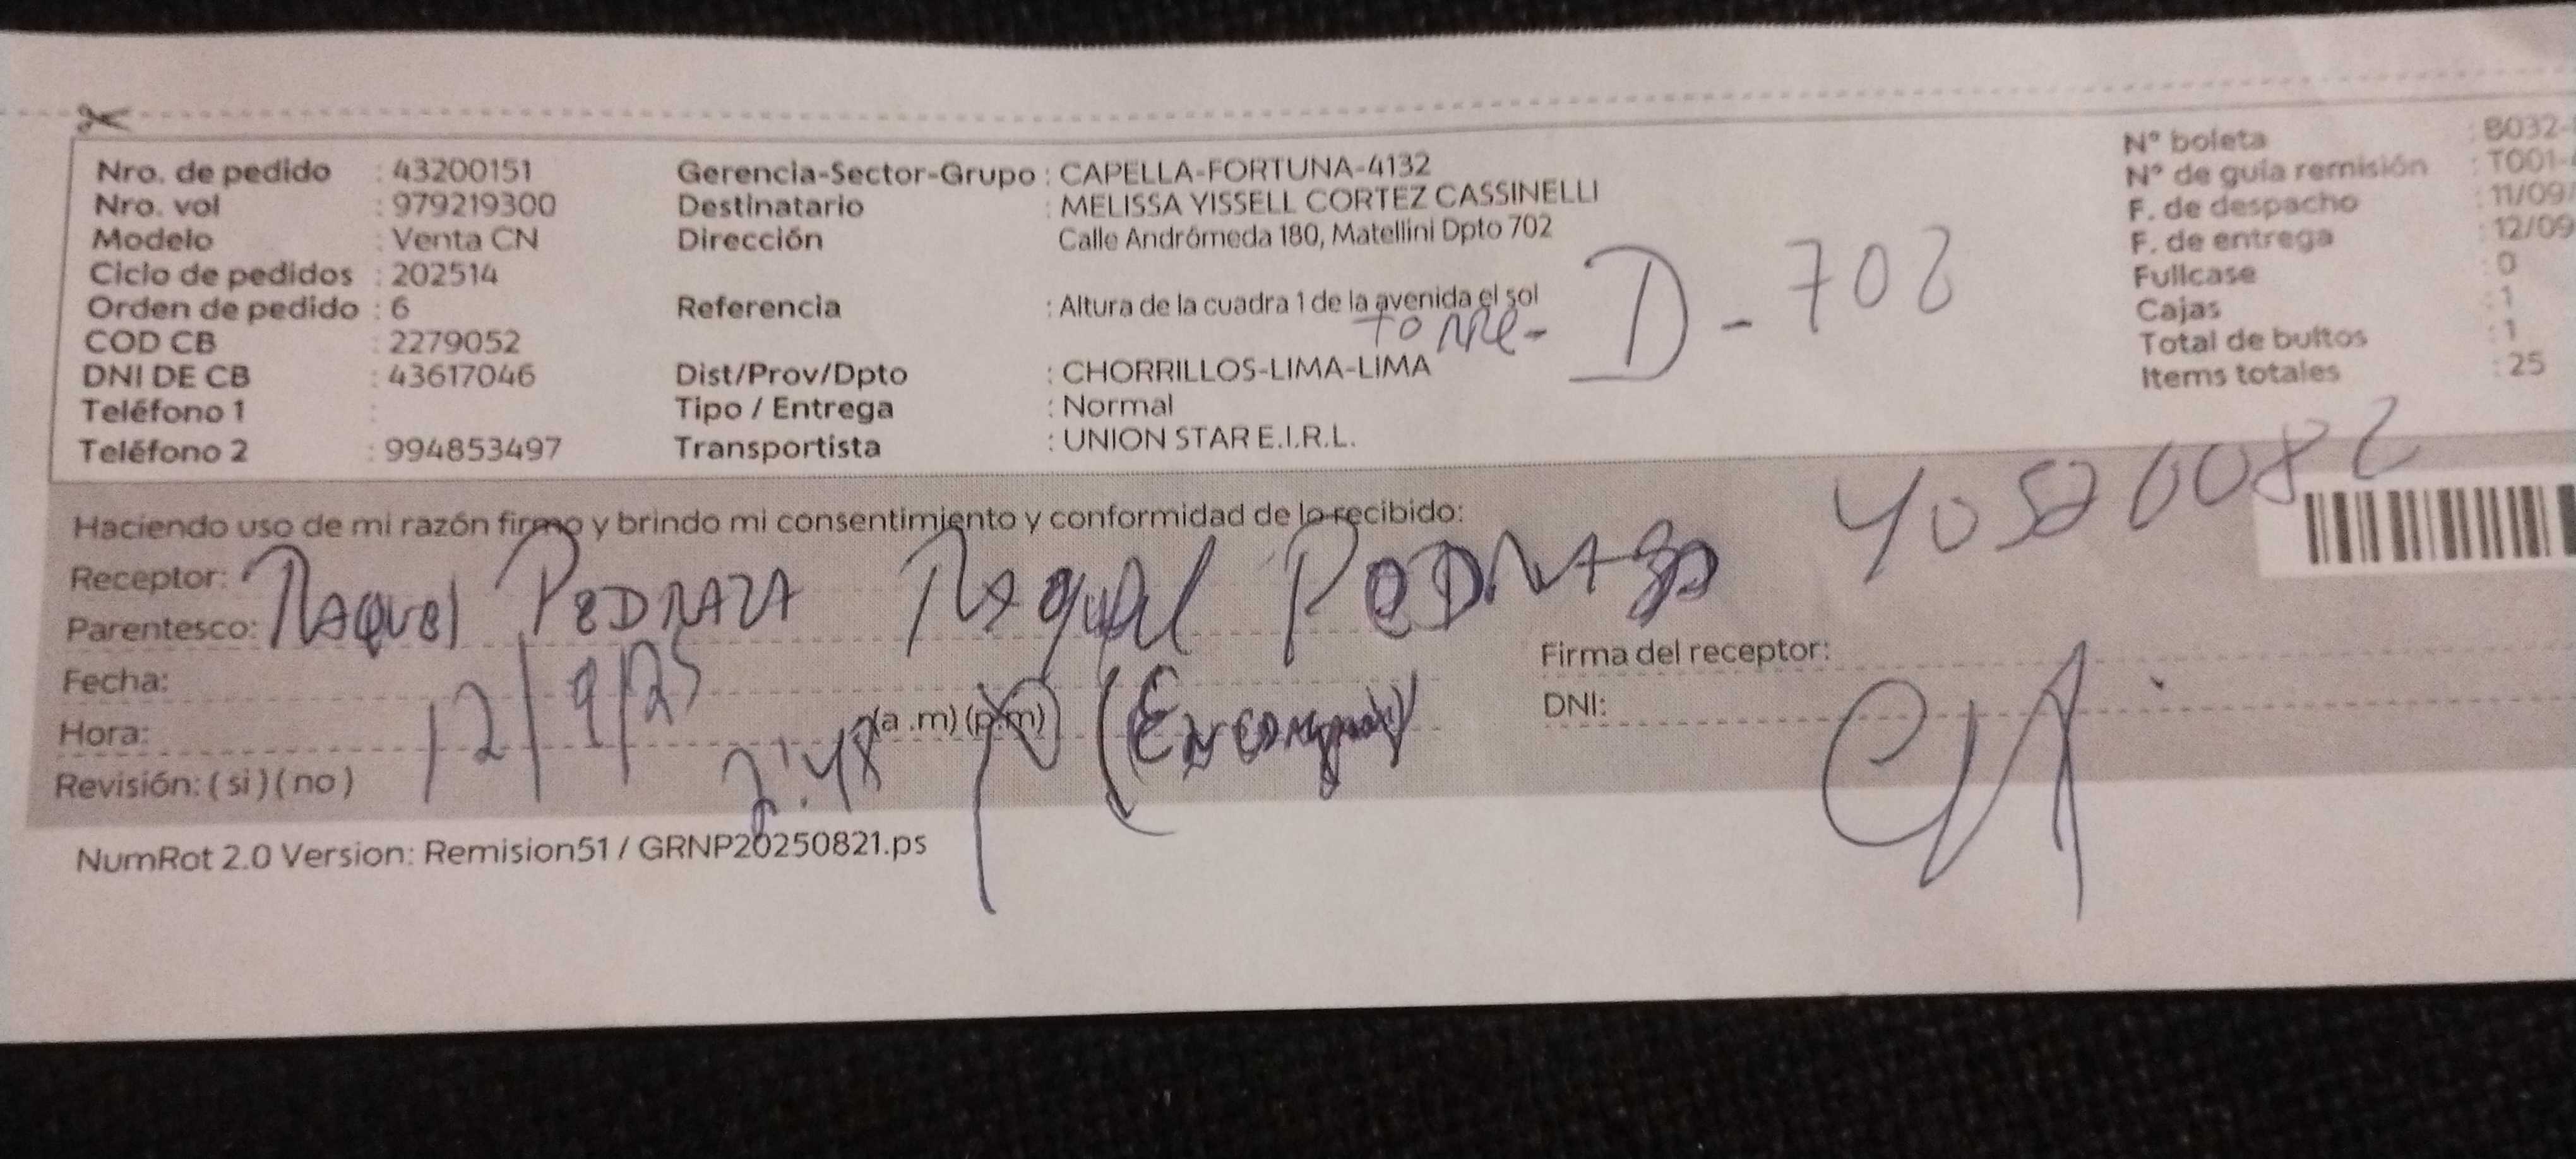 Nro. de pedido : 43200151
Nro. vol : 979219300
Modelo : Venta CN
Ciclo de pedidos : 202514
Orden de pedido : 6
COD CB : 2279052
DNI DE CB : 43617046
Teléfono 1 :
Teléfono 2 : 994853497
Gerencia-Sector-Grupo : CAPELLA-FORTUNA-4132
Destinatario : MELISSA YISSELL CORTEZ CASSINELLI
Dirección Calle Andrómeda 180, Matellini Dpto 702
Referencia : Altura de la cuadra 1 de la avenida el sol
Torre- D - 702
Dist/Prov/Dpto : CHORRILLOS-LIMA-LIMA
Tipo / Entrega : Normal
Transportista : UNION STAR E.I.R.L.
N° boleta : B032-
N° de guía remisión : T001-
F. de despacho : 11/09/
F. de entrega : 12/09
Fullcase : 0
Cajas : 1
Total de bultos : 1
Items totales : 25
Haciendo uso de mi razón firmo y brindo mi consentimiento y conformidad de lo recibido:
Receptor: Raquel Pedraza Raquel
Parentesco:
Fecha: 12/9/25
Hora: 2:48 (a .m) (p.m)
Revisión: ( si ) ( no )
Firma del receptor:
DNI:
NumRot 2.0 Version: Remision51 / GRNP20250821.ps